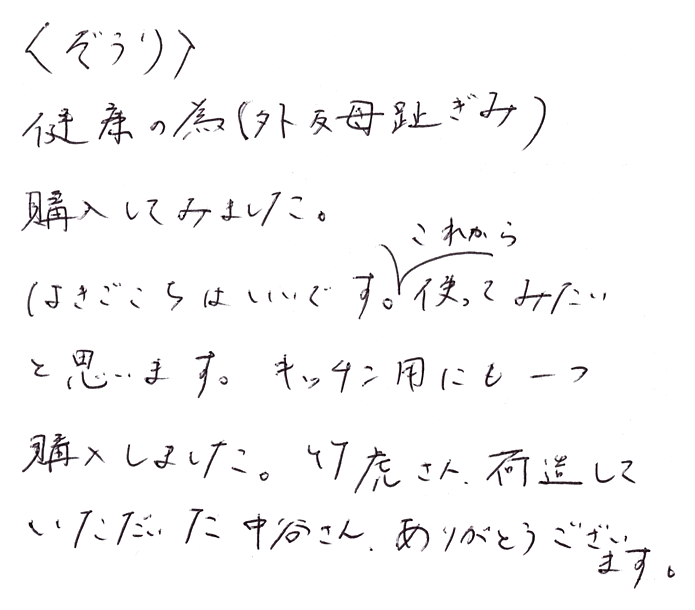 〈ぞうり〉
健康の為(外反母趾ぎみ)
購入してみました。
これから
はきごこちはいいです。使ってみたい
と思います。キッチン用にも一つ
購入しました。竹虎さん、荷造して
いただいた中谷さん、ありがとうござい
ます。